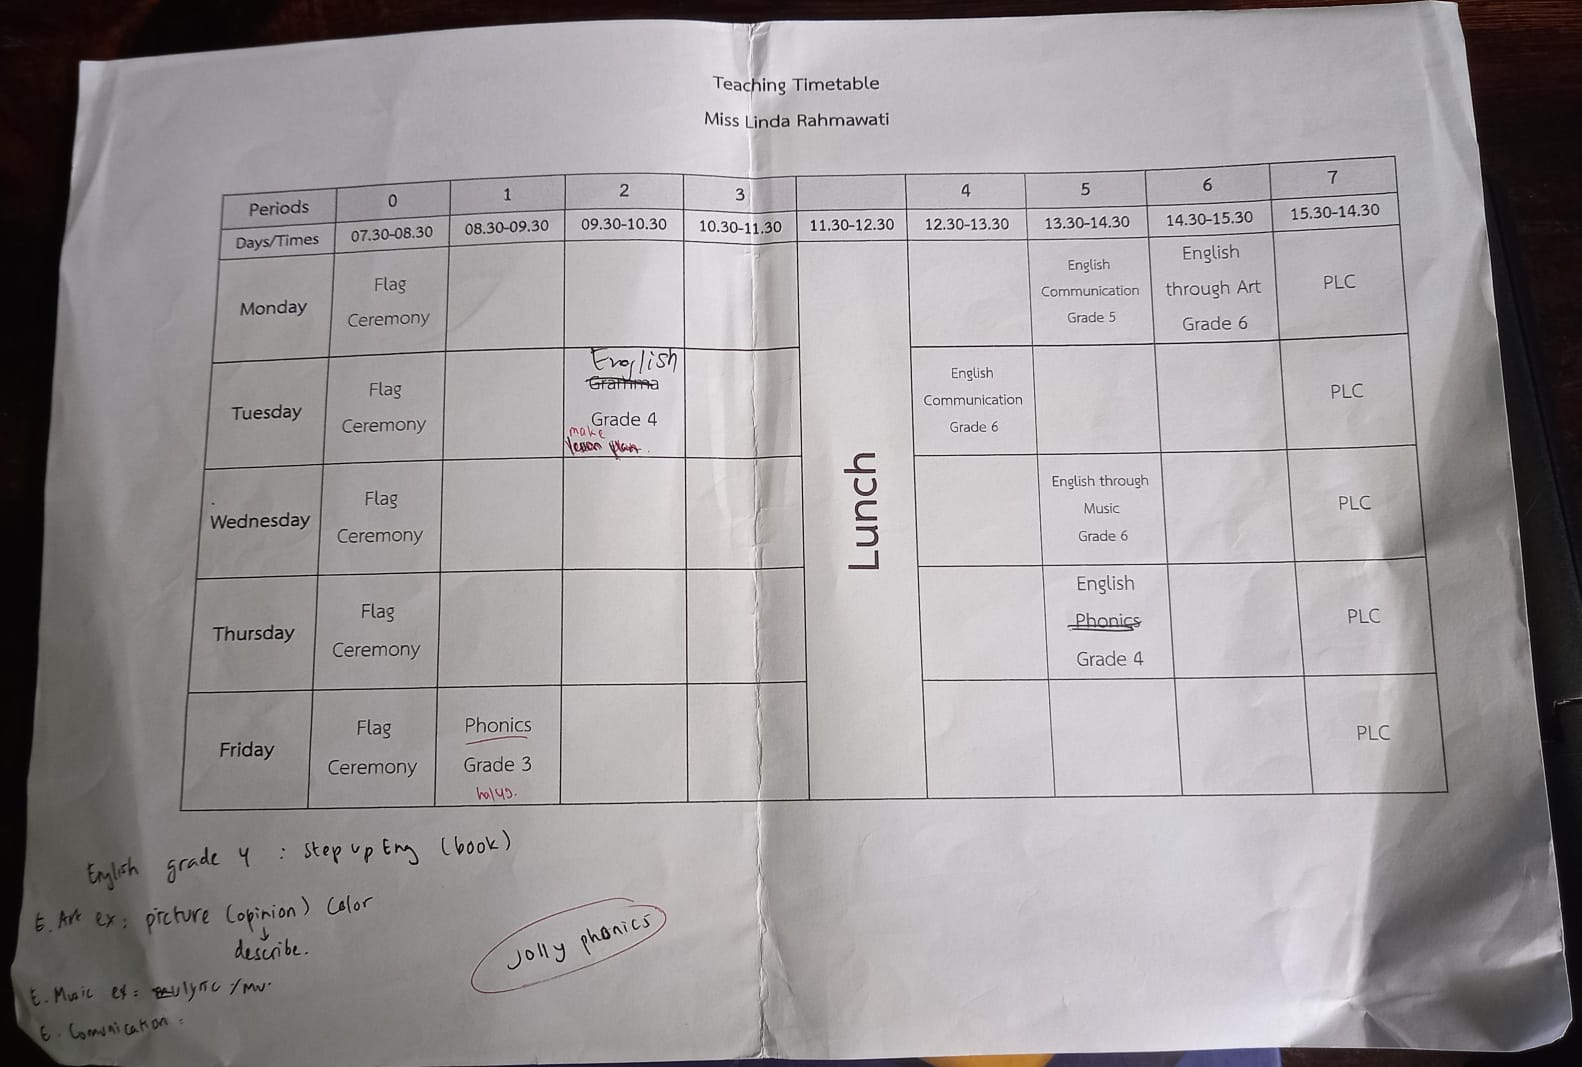 Teaching Timetable
Miss Linda Rahmawati
Periods 0 1 2 3 4 5 6 7
Days/Times 07.30-08.30 08.30-09.30 09.30-10.30 10.30-11.30 11.30-12.30 12.30-13.30 13.30-14.30 14.30-15.30 15.30-14.30
Monday
Flag
Ceremony
English
Communication
Grade 5
English
through Art
Grade 6
PLC
Tuesday
Flag
Ceremony
English
Gramma
Grade 4
make
lesson plan.
English
Communication
Grade 6
PLC
Wednesday
Flag
Ceremony
English through
Music
Grade 6
PLC
Thursday
Flag
Ceremony
English
Phonics
Grade 4
PLC
Friday
Flag
Ceremony
Phonics
Grade 3
PLC
Lunch
English grade 4 : Step up Eng (book)
E. Art ex : picture (opinion) Color
describe.
E. Music ex = lyric / mv.
E. Comunication =
Jolly phonics